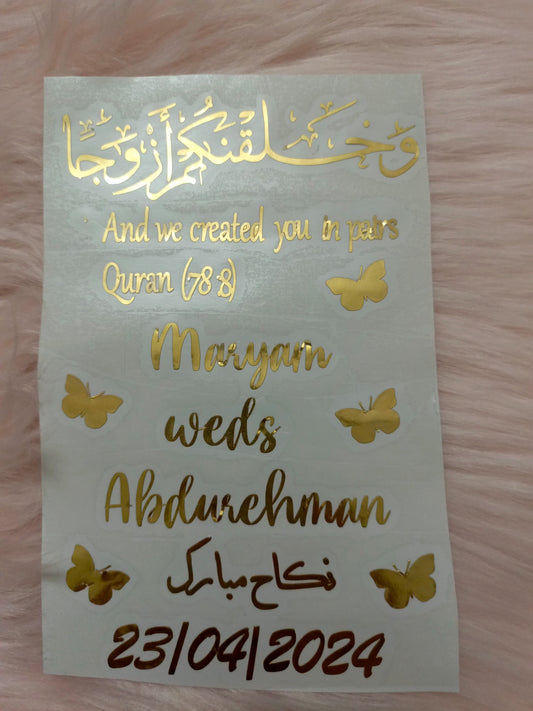 وَخَلَقْنَكُمْ أَزْوَجًا
And we created you in pairs
Quran (78:8)
Maryam
weds
Abdurehman
نکاح مبارک
23/04/2024